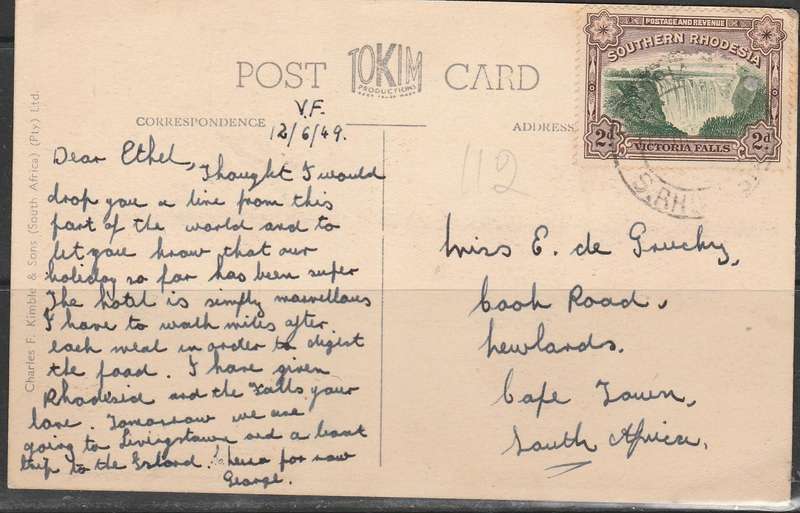 POST TOKIM CARD
PRODUCTIONS
CORRESPONDENCE
ADDRESS
V.F.
12/6/49.
Dear Ethel,
Thought I would
drop you a line from this
part of the world and to
let you know that our
holiday so far has been super
The hotel is simply marvellous
I have to walk miles after
each meal in order to digest
the food. I have given
Rhodesia and the Falls your
love. Tomorrow we are
going to Livingstone and a boat
trip to the Island. Cheerio for now
George.
Charles F. Kimble & Sons (South Africa) (Pty) Ltd.
112
POSTAGE AND REVENUE
SOUTHERN RHODESIA
2d. 2d.
VICTORIA FALLS
S. RH
Miss E. de Gruchy,
Cook Road,
Newlands.
Cape Town,
South Africa.